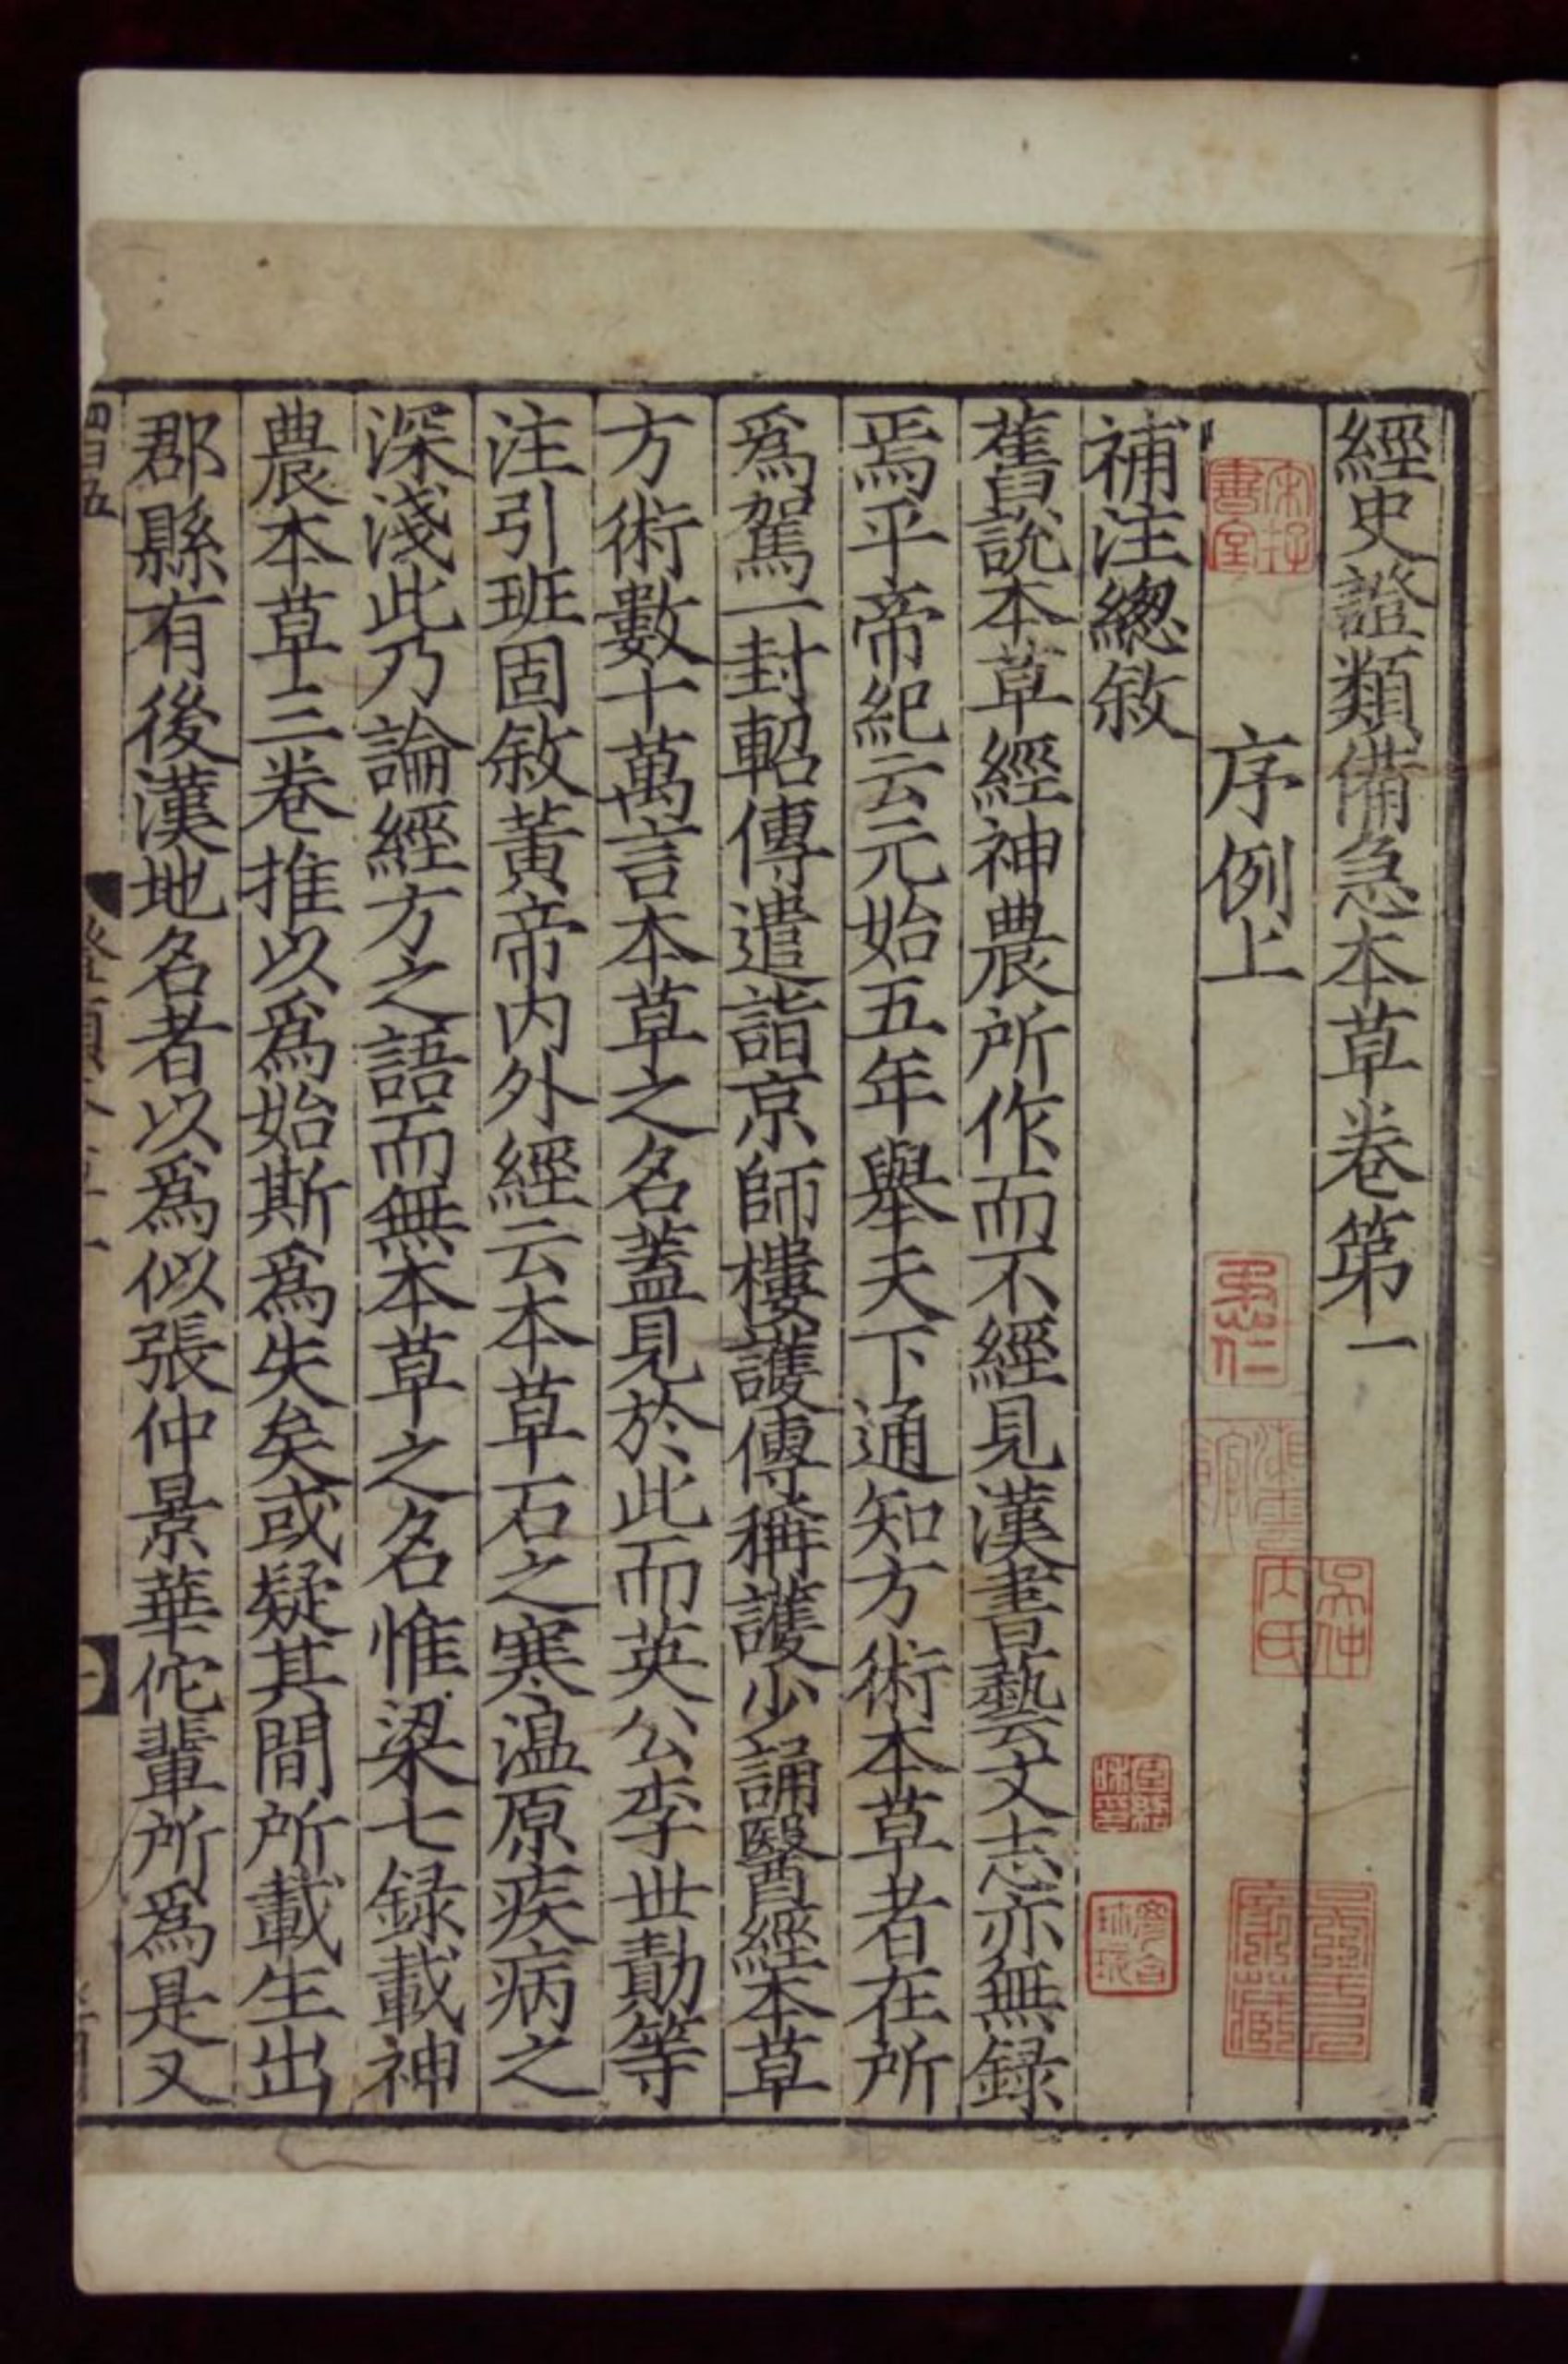 經史證類備急本草卷第一
序例上
補注緫敘
舊説本草經神農所作而不經見漢書藝文志亦無録
焉平帝紀云元始五年舉天下通知方術本草者在所
爲駕一封軺傳遣詣京師樓護傳稱護少誦醫經本草
方術數十萬言本草之名蓋見於此而英公李世勣等
注引班固敘黃帝内外經云本草石之寒温原疾病之
深淺此乃論經方之語而無本草之名惟梁七録載神
農本草三卷推以爲始斯爲失矣或疑其間所載生出
郡縣有後漢地名者以爲似張仲景華佗輩所爲是又
四百五